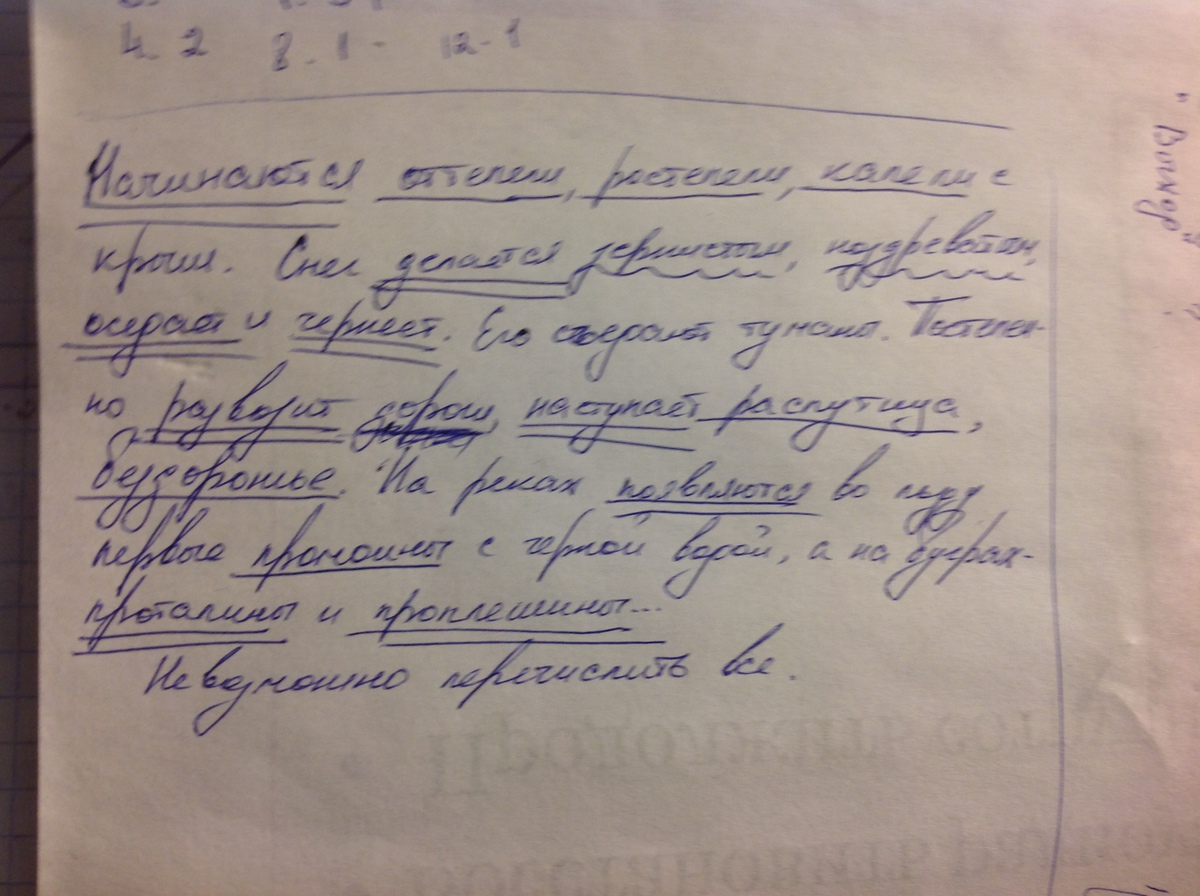 4. 2 8. 1 - 12 - 1
Начинаются оттепели, ростепели, капели с
крыш. Снег делается зернистым, ноздреватым,
оседает и чернеет. Его съедают туманы. Постепен-
но развозит дороги, наступает распутица,
бездорожье. На реках появляются во льду
первые промоины с черной водой, а на буграх -
проталины и проплешины...
Невозможно перечислить все.
Продолжи
восстановить